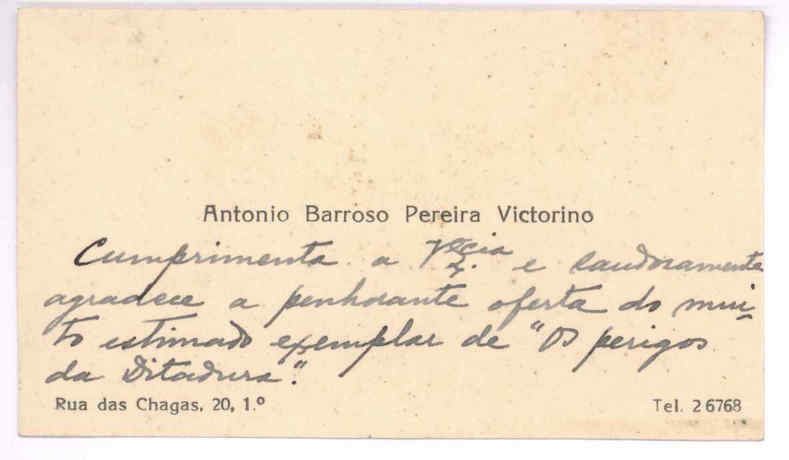 Antonio Barroso Pereira Victorino
Cumprimenta a V. Excia e saudosamente
agradece a penhorante oferta do mui-
to estimado exemplar de "Os perigos
da Ditadura".
Rua das Chagas, 20, 1.º
Tel. 2 6768